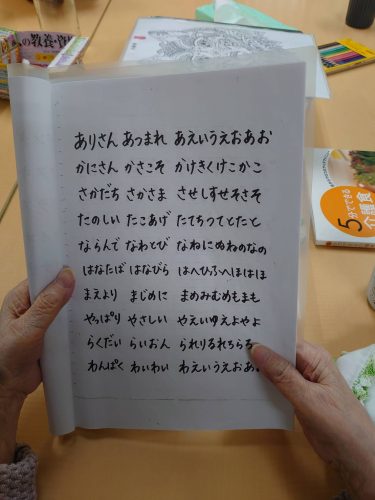 の教養・資
ありさん あつまれ あえいうえおあお
かにさん かさこそ かけきくけこかこ
さかだち さかさま させしすせそさそ
たのしい たこあげ たてちつてとたと
ならんで なわとび なねにぬねのなの
はなたば はなびら はへひふへほはほ
まえより まじめに まめみむめもまも
やっぱり やさしい やえいゆえよやよ
らくだい らいおん られりるれろらろ
わんぱく わいわい わえいうえおあ
5分でできる
介護食